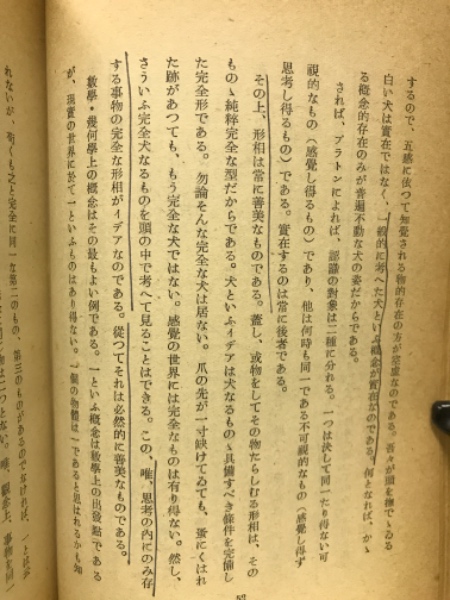 するので、五感に依つて知覺される物的存在の方が空虛なのである。吾々が頭を撫でゝゐる
白い犬は實在ではなく、一般的に考へた犬といふ概念が實在なのである。何となれば、かゝ
る概念的存在のみが普遍不動な犬の姿だからである。
されば、プラトンによれば、認識の對象は二種に分れる。一つは決して同一たり得ない可
視的なもの（感覺し得るもの）であり、他は何時も同一である不可視的なもの（感覺し得ず
思考し得るもの）である。實在するのは常に後者である。
その上、形相は常に善美なものである。蓋し、或物をしてその物たらしむる形相は、その
ものゝ純粹完全な型だからである。犬といふイデアは犬なるものゝ具備すべき條件を完備し
た完全形である。勿論そんな完全な犬は居ない。爪の先が一寸缺けてゐても、蚤にくはれ
た跡があつても、もう完全な犬ではない。感覺の世界には完全なものは有り得ない。然し、
さういふ完全犬なるものを頭の中で考へて見ることはできる。この、唯、思考の內にのみ存
する事物の完全な形相がイデアなのである。從つてそれは必然的に善美なものである。
數學・幾何學上の概念はその最もよい例である。一といふ概念は數學上の出發點である
が、現實の世界に於て一といふものはあり得ない。一個の物體は一であると思はれるかも知
れないが、苟くも之と完全に同一な第二のもの、第三のものがあるのでなければ、一とは
物は二つとない。唯、觀念上、事物を同